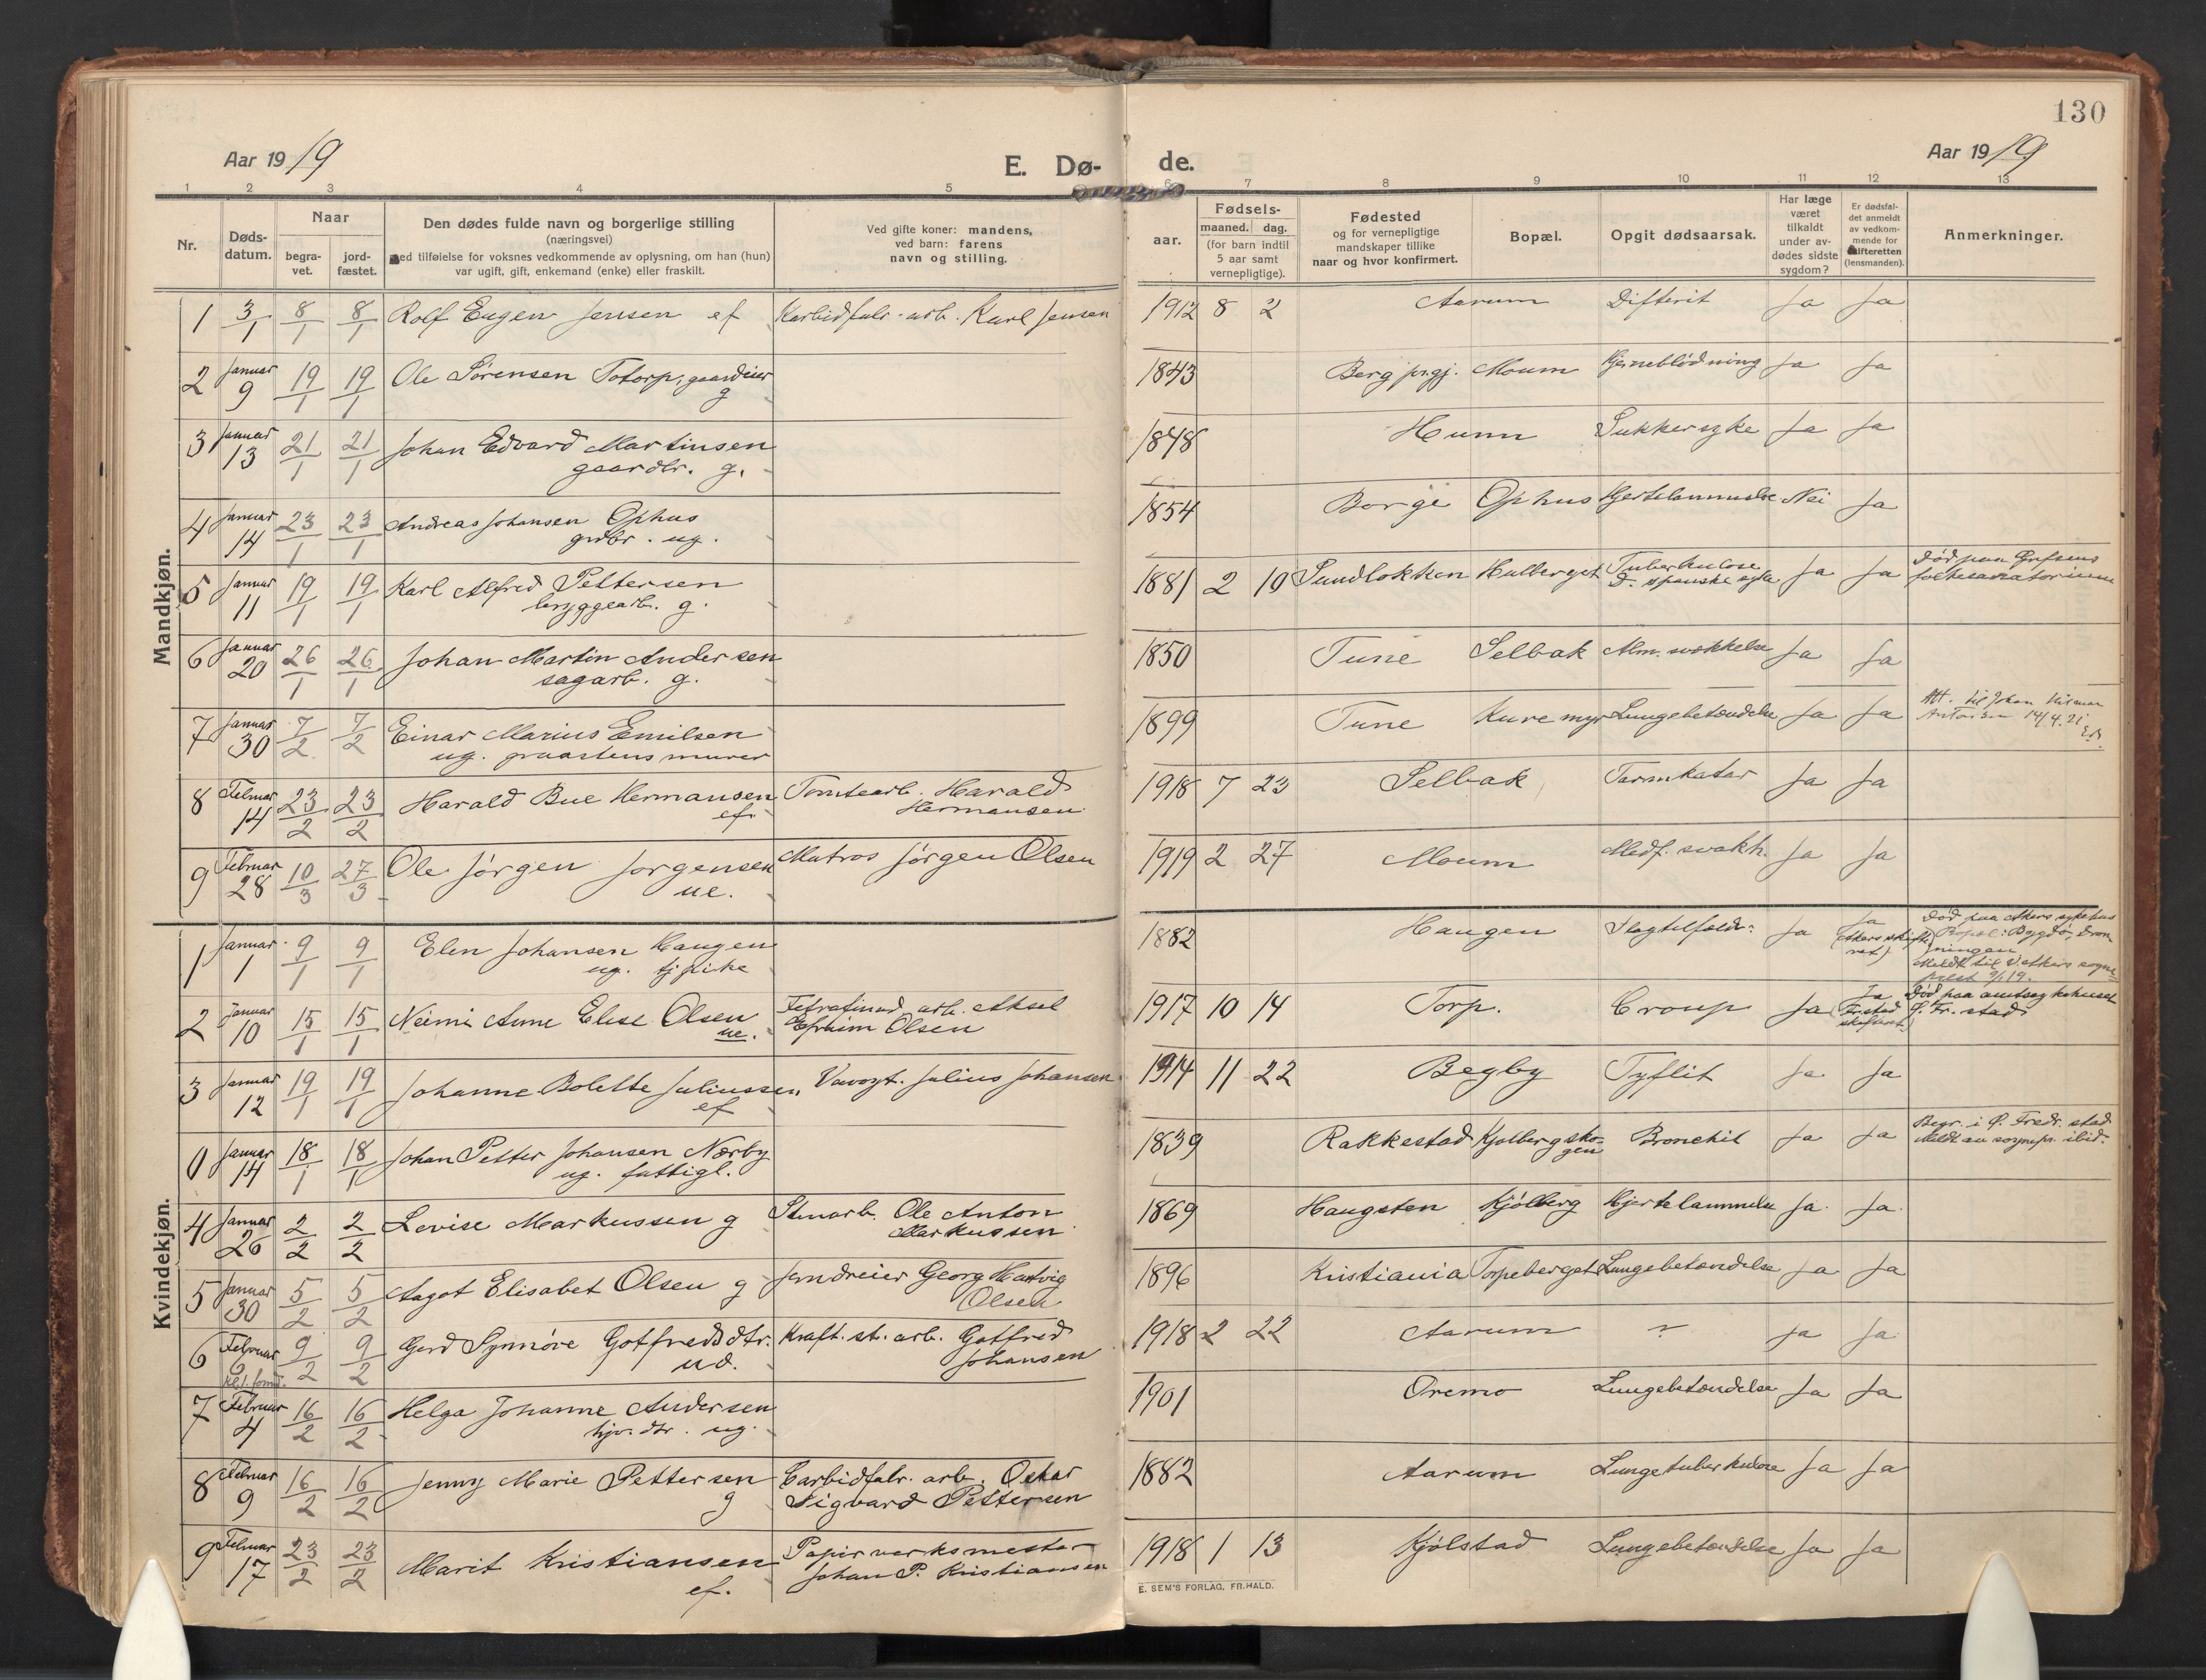 130
Aar 1919
E. Dø-
de.
Aar 1919
1 2 3 4 5 6 7 8 9 10 11 12 13
Nr.
Døds-
datum.
Naar
begra-
vet.
jord-
fæstet.
Den dødes fulde navn og borgerlige stilling
(næringsvei)
med tilføielse for voksnes vedkommende av oplysning, om han (hun)
var ugift, gift, enkemand (enke) eller fraskilt.
Ved gifte koner: mandens,
ved barn: farens
navn og stilling.
aar.
Fødsels-
maaned. dag.
(for barn indtil
5 aar samt
vernepligtige).
Fødested
og for vernepligtige
mandskaper tillike
naar og hvor konfirmert.
Bopæl.
Opgit dødsaarsak.
Har læge
været
tilkaldt
under av-
dødes sidste
sygdom?
Er dødsfal-
det anmeldt
av vedkom-
mende for
skifteretten
(lensmanden).
Anmerkninger.
Mandkjøn.
1 3/1 8/1 8/1 Rolf Eugen Jensen ef Karbidfabr. arb. Karl Jensen 1912 8 2 Aarum Difterit Ja Ja
2 Januar 9 19/1 19/1 Ole Sørensen Totorp, gaardeier
g 1843 Berg prgj. Moum Hjerneblødning Ja Ja
3 Januar 13 21/1 21/1 Johan Edvard Martinsen
gaardbr. g. 1848 Hunn Sukkersyke Ja Ja
4 Januar 14 23/1 23/1 Andreas Johansen Ophus
grdbr. ug. 1854 Borge Ophus Hjertelammelse Nei Ja
5 Januar 11 19/1 19/1 Karl Alfred Pettersen
bryggearb. g. 1881 2 10 Sundløkken Hulberget Tuberkulose
d. spanske syke Ja Ja Død paa Grefsens
folkesanatorium
6 Januar 20 26/1 26/1 Johan Martin Andersen
sagarb. g. 1850 Tune Selbak Alm. svækkelse Ja Ja
7 Januar 30 7/2 7/2 Einar Marius Emilsen
ug. graastens murer 1899 Tune Kuremyr Lungebetændelse Ja Ja Att. til Johan Hilmar
Antonsen 14/4.21.
8 Februar 14 23/2 23/2 Harald Bue Hermansen
ef. Tomtearb. Harald
Hermansen 1918 7 23 Selbak Tarmkatar Ja Ja
9 Februar 28 10/3 27/3 Ole Jørgen Jørgensen
ue. Matros Jørgen Olsen 1919 2 27 Moum Medf. svakh. Ja Ja
Kvindekjøn.
1 Januar 1 9/1 9/1 Elen Johansen Haugen
ug. tj.pike 1882 Haugen Slagtilfælde Ja Ja
(Akers skifte
ret) Død paa Akers sykehus
Bopæl: Bygdø, Dron
ningen
Meldt til V. Akers sogne
prest 9/1 19.
2 Januar 10 15/1 15/1 Neimi Anne Elise Olsen
ue. Fetrafinad. arb. Aksel
Efraim Olsen 1917 10 14 Torp. Croup Ja Ja
(Fr.stad
skifteret) Død paa amtssykehuset
G. Fr.stad
3 Januar 12 19/1 19/1 Johanne Bolette Juliussen
ef Vavogt. Julius Johansen 1914 11 22 Begby Tyflit Ja Ja
0 Januar 14 18/1 18/1 Johan Petter Johansen Nærby
ug. fattigl. 1839 Rakkestad Kjølbergsko-
gen Bronchit Ja Ja Begr. i G. Fredr.stad
Meldt av sognepr. ibid.
4 Januar 26 2/2 2/2 Levise Markussen g Stenarb. Ole Anton
Markussen 1869 Haugsten Kjølberg Hjertelammelse Ja. Ja.
5 Januar 30 5/2 5/2 Aagot Elisabet Olsen g Jerndreier Georg Hartvig
Olsen 1896 Kristiania Torpeberget Lungebetændelse Ja Ja
6 Februar 6 kl. 1. form. 9/2 9/2 Gerd Synnøve Gotfredsdtr.
ud. Kraft. st. arb. Gotfred
Johansen 1918 2 22 Aarum ? Ja Ja
7 Februar 4 16/2 16/2 Helga Johanne Andersen
hjv. dtr. ug. 1901 Oremo Lungebetændelse Ja Ja
8 Februar 9 16/2 16/2 Jenny Marie Pettersen
g Carbidfabr. arb. Oskar
Sigvard Pettersen 1882 Aarum Lungetuberkulose Ja Ja
9 Februar 17 23/2 23/2 Marit Kristiansen
ef. Papirverksmester
Johan P. Kristiansen 1918 1 13 Kjølstad Lungebetændelse Ja Ja
E. SEM'S FORLAG, FR.HALD.